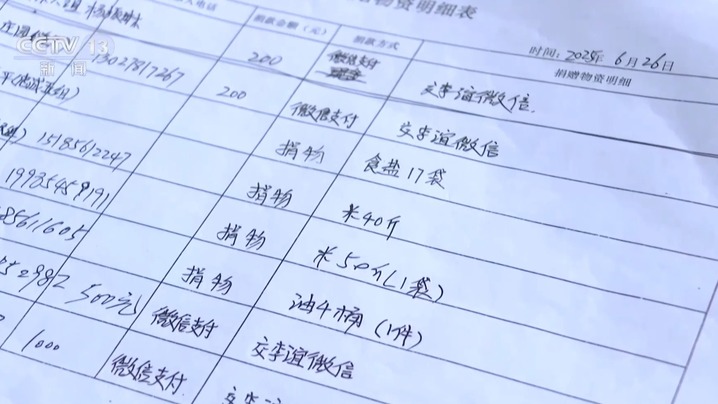 物资明细表
时间：2025年6月26日
人电话 捐款金额（元） 捐款方式 捐赠物资明细
CCTV 13
新闻
13027817267 200 微信支付 交李谊微信
200 微信支付 交李谊微信
15185612247 捐物 食盐17袋
19985459191 捐物 米40斤
85611605 捐物 米50斤（1袋）
捐物 油4桶（1件）
2982 500元 微信支付 交李谊微信
1000 微信支付